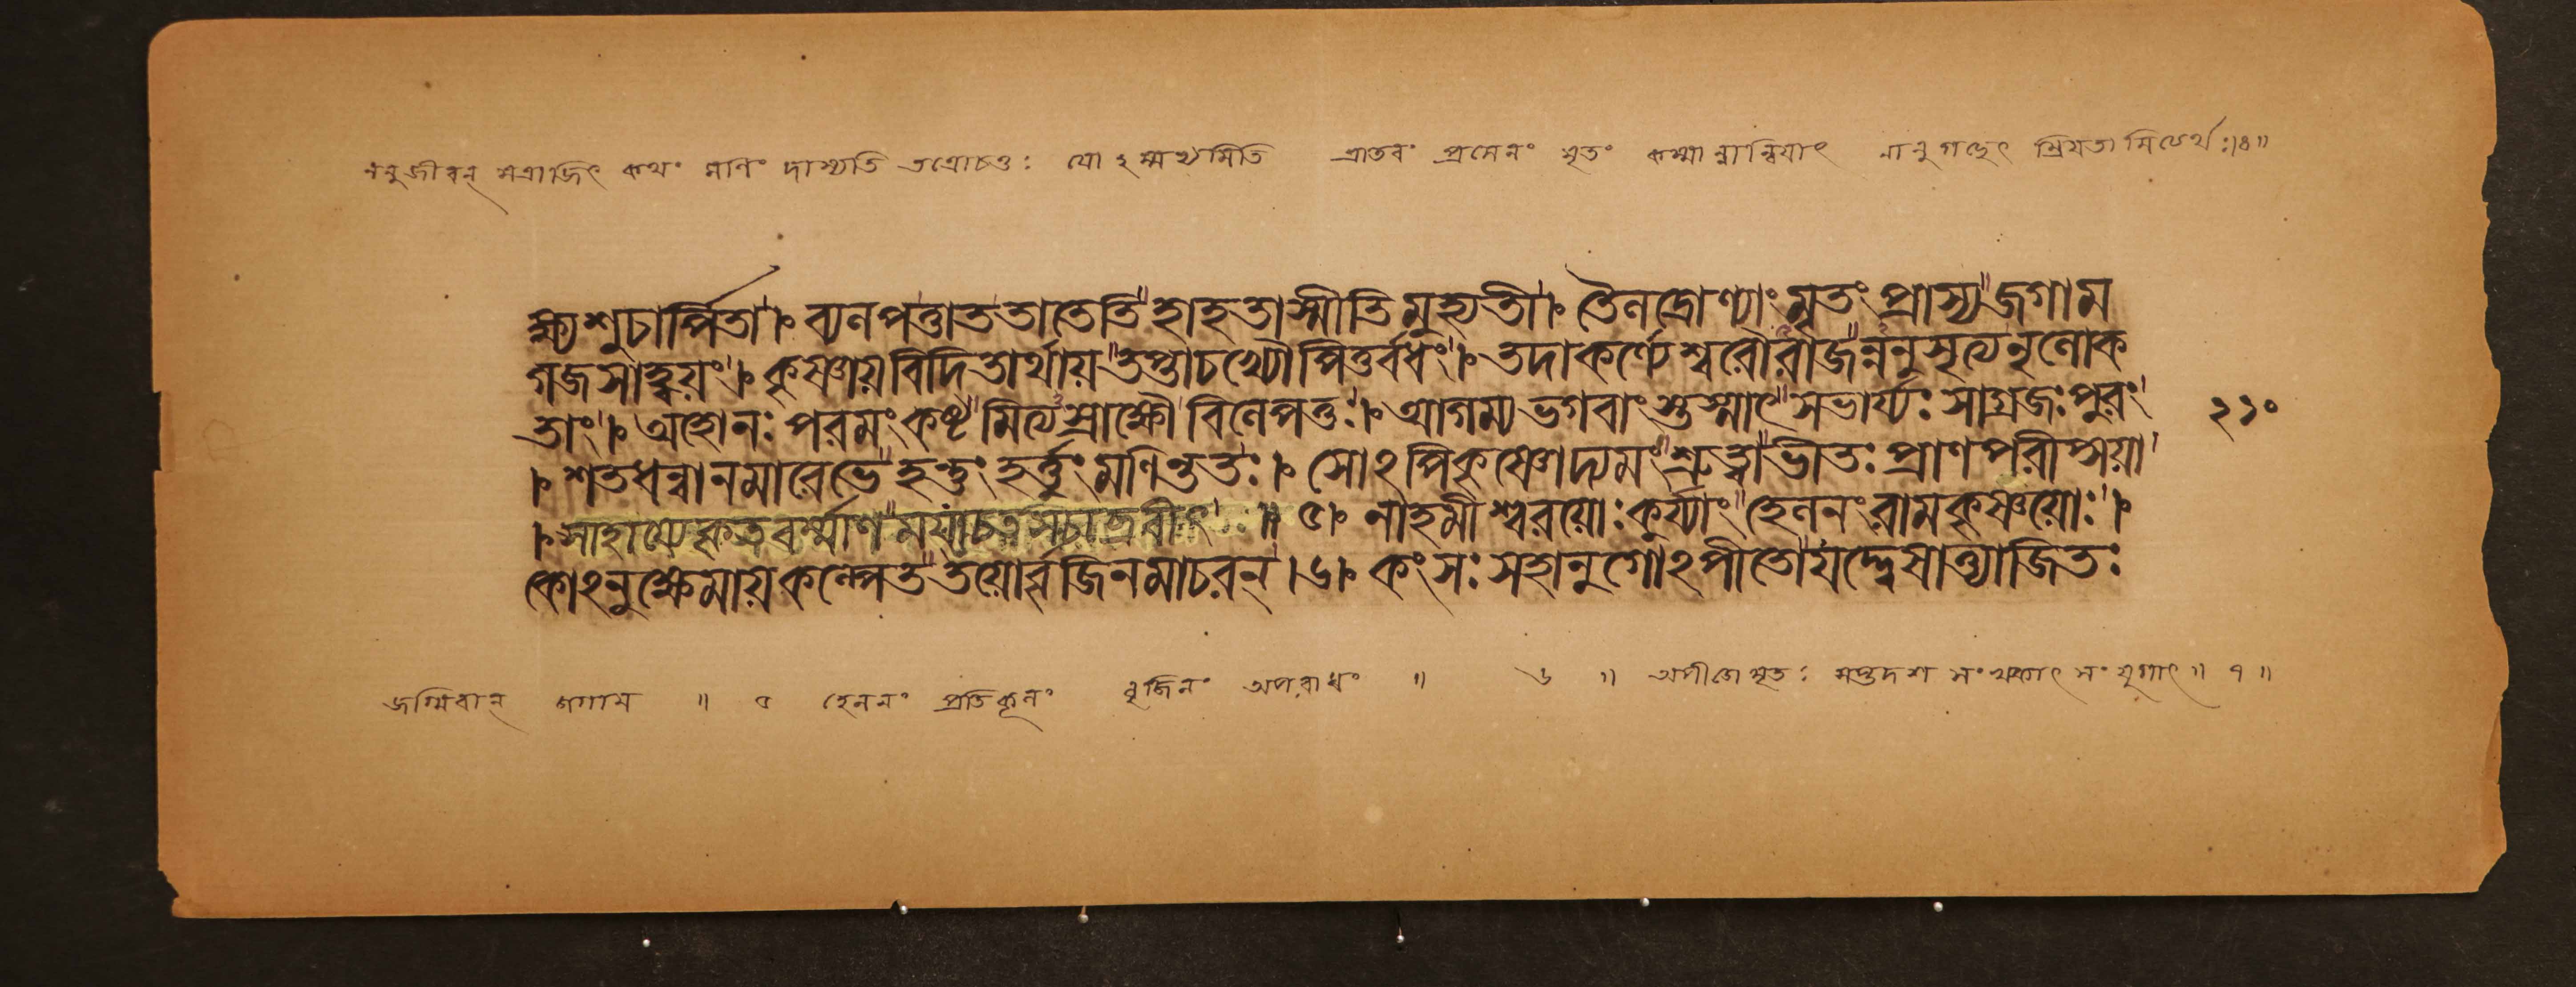 ননুজীবন্ সত্রাজিৎ কথং মণিং দাস্যতি তত্রোচতুঃ যোঽস্মভ্যমিতি ভ্রাতরং প্রসেনং মৃতং কস্মান্নান্বিয়াৎ নানুগচ্ছেৎ ম্রিয়তামিত্যর্থঃ॥৪॥
ক্ষ্য শুচার্পিতা । ব্যলপত্তাত তাতেতি হা হতাস্মীতি মুহ্যতী । তৈলদ্রোণ্যাং মৃতং প্রাস্য জগাম
গজসাহ্বয়ং । কৃষ্ণায় বিদিতার্থায় তপ্তাচখ্যৌ পিতুর্বধং । তদাকর্ণ্যেশ্বরৌ রাজন্ননুসৃত্য নৃলোক
তাং । অহো নঃ পরমং কষ্টমিত্যস্রাক্ষৌ বিলেপতুঃ । আগম্য ভগবাংস্তস্মাৎ সভার্য্যঃ সাগ্রজঃ পুরং
। শতধন্বানমারেভে হন্তুং হর্ত্তুং মণিন্ততঃ । সোঽপি কৃষ্ণোদ্যমং শ্রুত্বা ভীতঃ প্রাণপরীপ্সয়া
২১০
। সাহায্যে কৃতবর্ম্মাণময়াচত স চাব্রবীৎ ॥ ৫ । নাহমীশ্বরয়োঃ কুর্য্যাং হেলনং রামকৃষ্ণয়োঃ ।
কোঽনু ক্ষেমায় কল্পেত তয়োর্বৃজিনমাচরন্ । ৬ । কংসঃ সহানুগোঽপীতো যদ্দ্বেষাত্ত্যাজিতঃ
জগ্মিবান্ জগাম ॥ ৫ হেলনং প্রতিকূলং বৃজিনং অপরাধং ॥ ৬ ॥ অপীতো মৃতঃ সপ্তদশ সংখ্যকাৎ সংযুগাৎ ॥ ৭ ॥